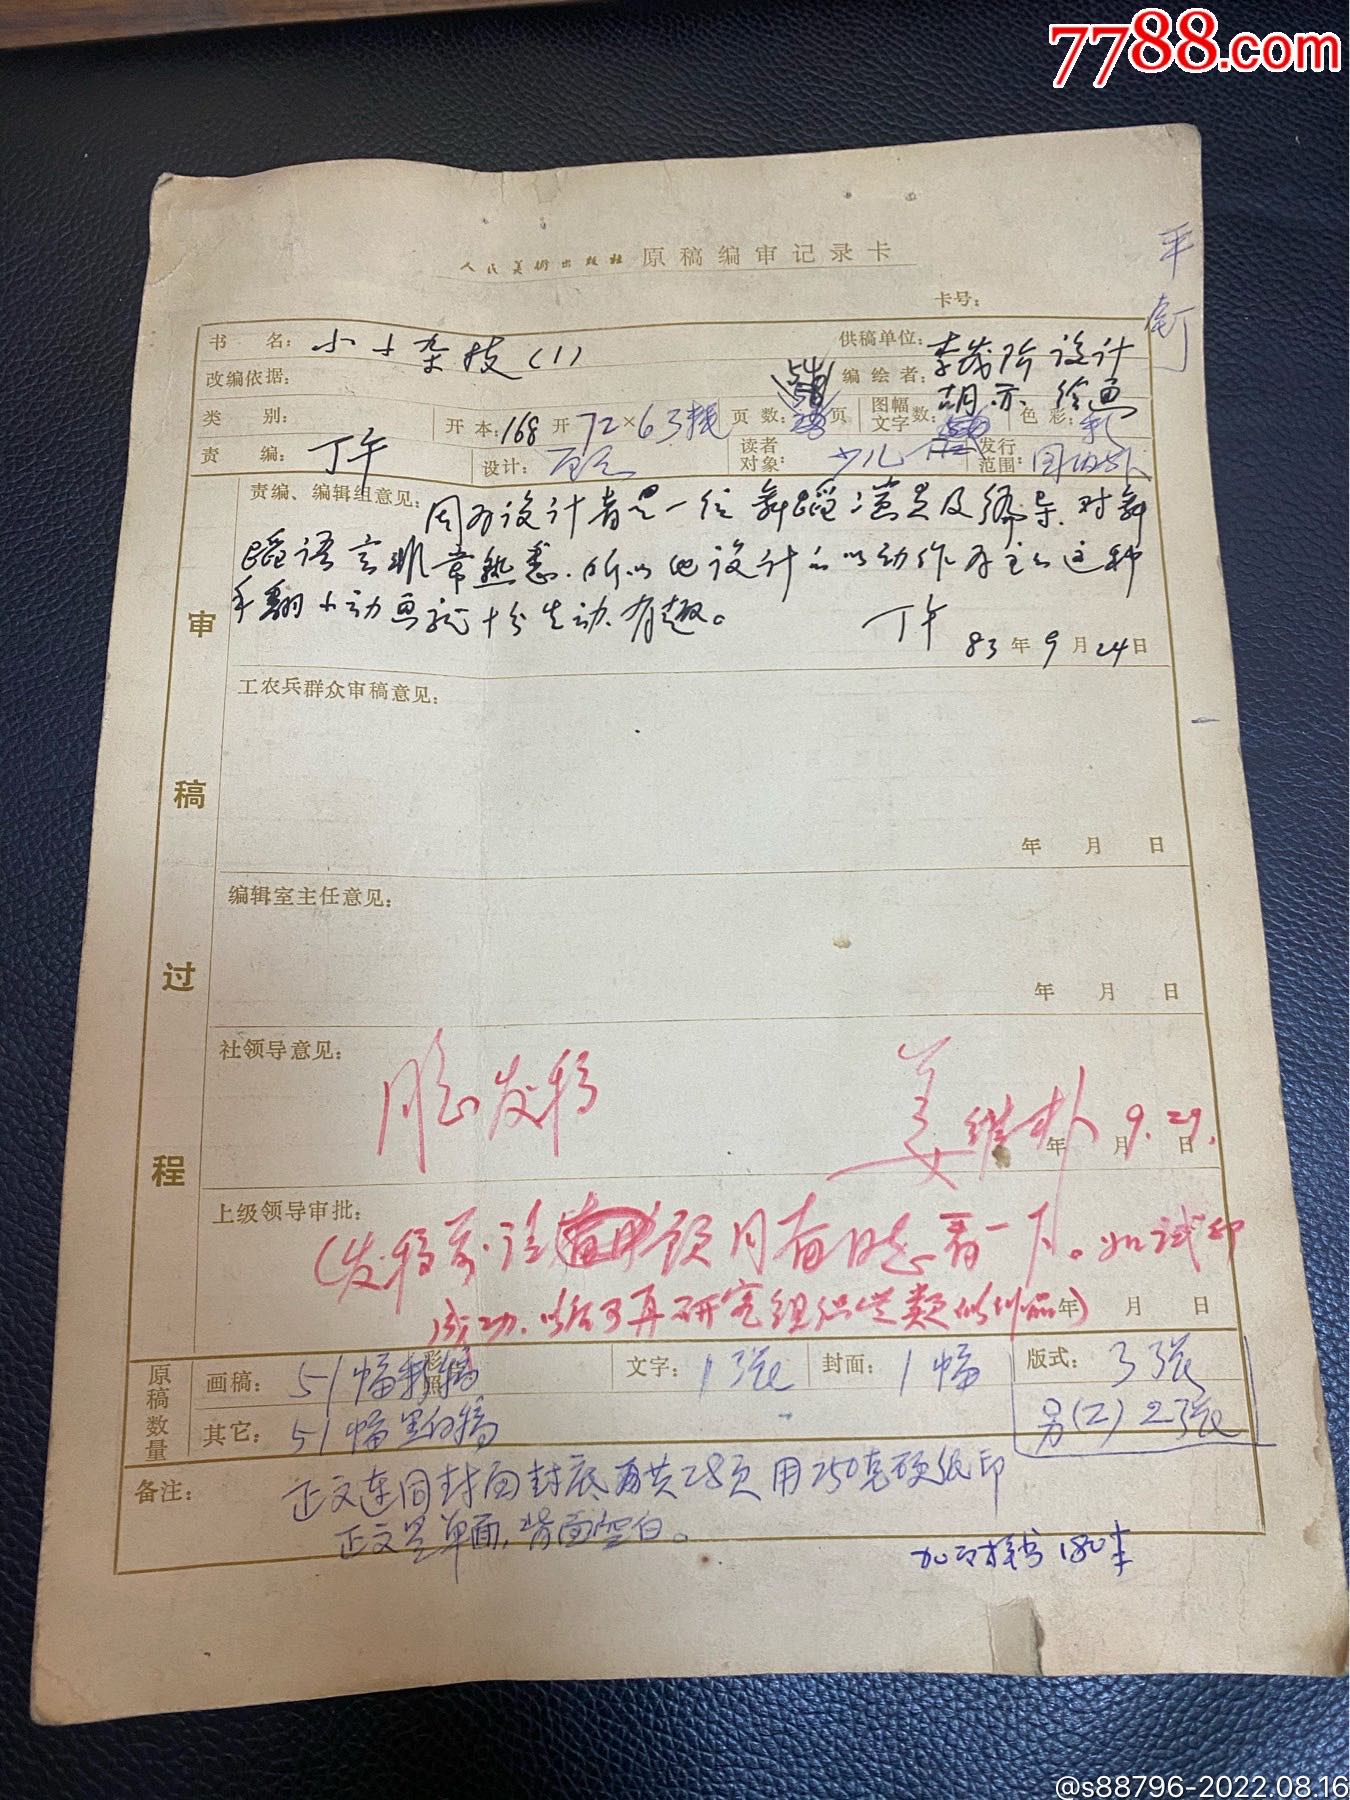 7788.com
平
人民美术出版社 原稿编审记录卡
卡号：
书 名： 小小杂技(1) 供稿单位：
改编依据： 编绘者： 李茂阶 设计
胡亦 绘画
类 别： 开本： 168 开 72×63 页数： 页 图幅文字数： 色彩： 彩
责 编： 丁午 设计： 读者对象： 少儿 发行范围： 国内外
审稿过程
责编、编辑组意见： 因为设计者是一位舞蹈演员及编导、对舞
蹈语言非常熟悉、所以他设计的以动作为主的这种
手翻小动画就十分生动、有趣。
丁午 83年9月24日
工农兵群众审稿意见：
年 月 日
编辑室主任意见：
年 月 日
社领导意见： 同意发稿 姜维朴 9.29.
年 月 日
上级领导审批：
(发稿前、请 同有同志看一下。如试印
成功、以后可再研究组织这类 品)
年 月 日
原稿数量
画稿： 51幅彩稿 文字： 1张 封面： 1幅 版式： 3张
彩照
其它： 51幅黑白稿 另(2)2张
备注： 正文连同封面封底再共28页用250克硬纸印
正文是单面，背面空白。
加 样书180本
@s88796-2022.08.16